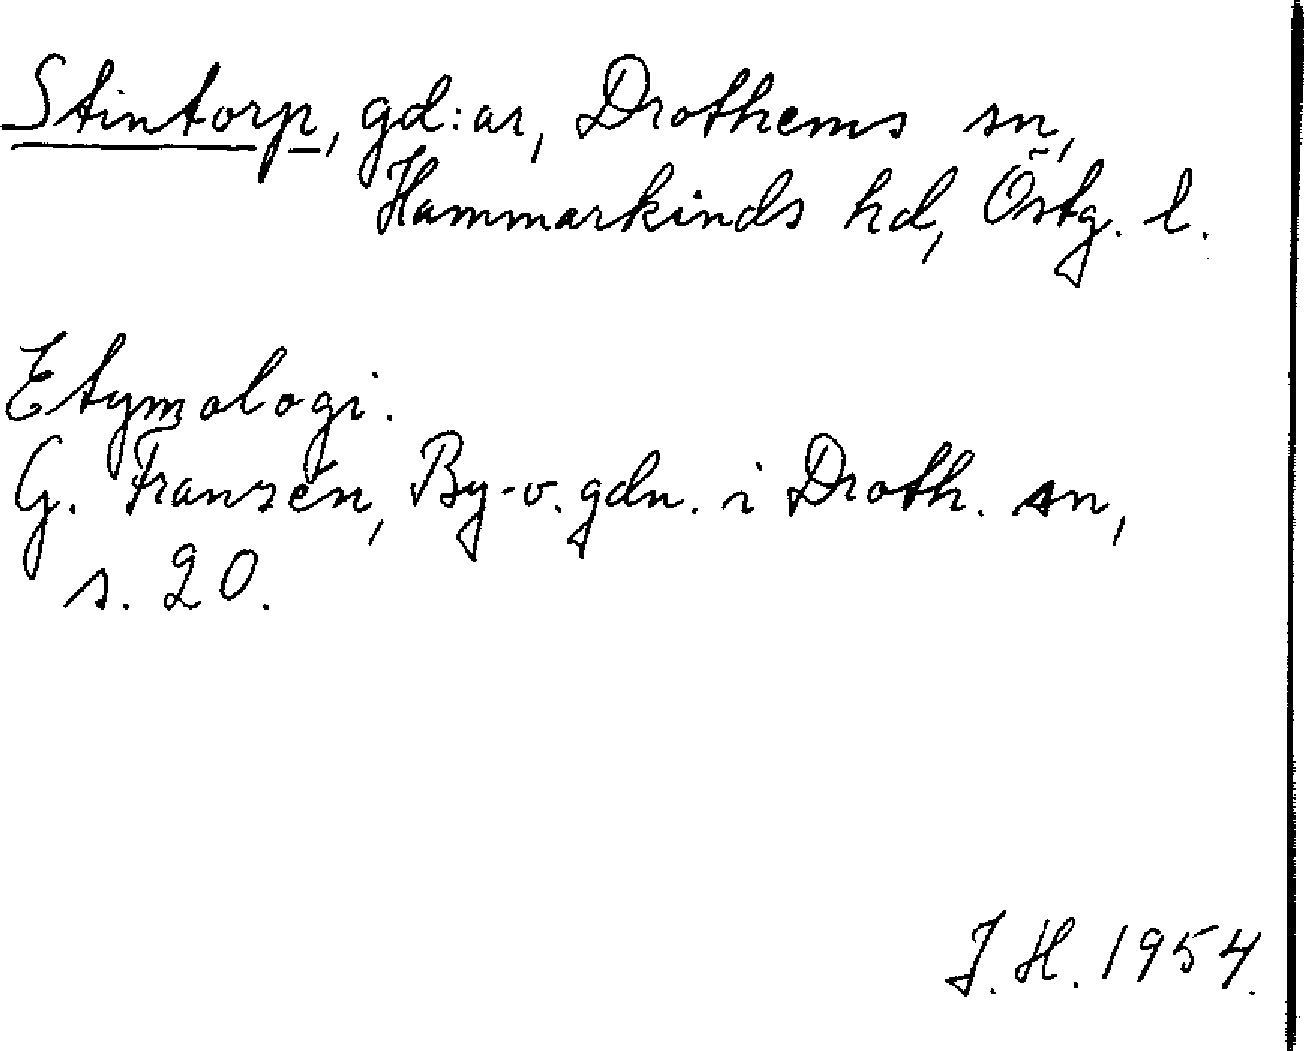 Stintorp, gd:ar, Drothems sn,
Hammarkinds hd, Östg. l.
Etymologi.
G. Franzén, By-o. gdn. i Droth. sn,
s. 20.
J. H. 1954.